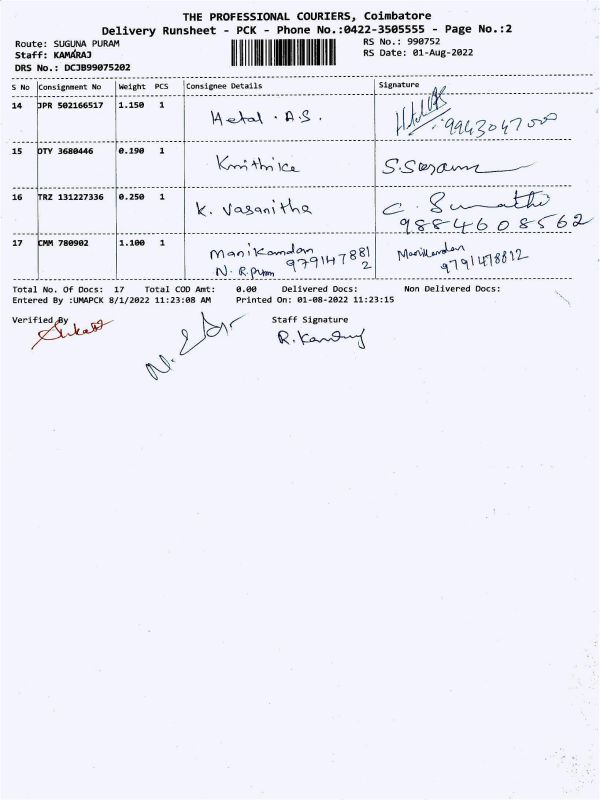 THE PROFESSIONAL COURIERS, Coimbatore
Delivery Runsheet - PCK - Phone No.:0422-3505555 - Page No.:2
Route: SUGUNA PURAM RS No.: 990752
Staff: KAMARAJ RS Date: 01-Aug-2022
DRS No.: DCJB99075202
S No Consignment No Weight PCS Consignee Details Signature
14 JPR 502166517 1.150 1 Hetal . A.S. 9943047000
15 OTY 3680446 0.190 1 Krithika
16 TRZ 131227336 0.250 1 K. Vasanitha C. Sumathi
9884608562
17 CMM 780902 1.100 1 Manikamdan 979147881 Manikandan
N. R. Puram 2 9791478812
Total No. Of Docs: 17 Total COD Amt: 0.00 Delivered Docs: Non Delivered Docs:
Entered By :UMAPCK 8/1/2022 11:23:08 AM Printed On: 01-08-2022 11:23:15
Verified By Staff Signature